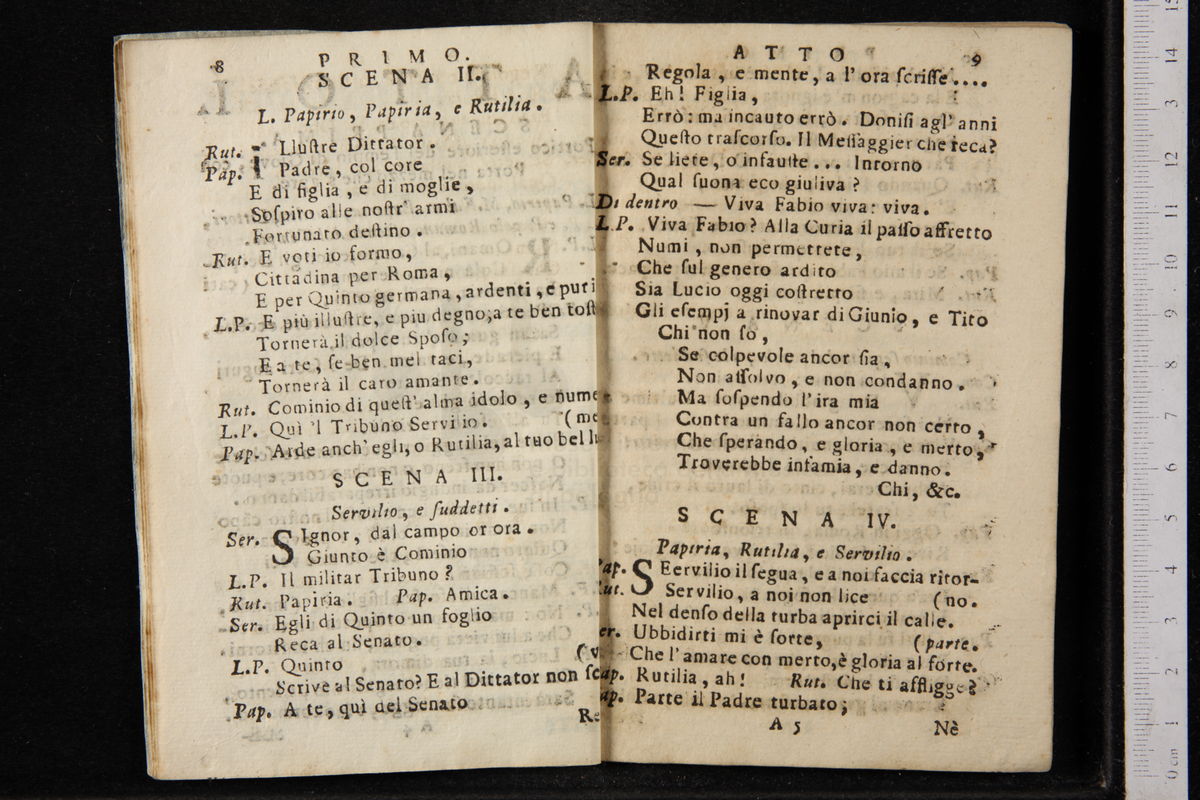 8
PRIMO.
SCENA II.
L. Papirio, Papiria, e Rutilia.
Rut. ILlustre Dittator.
Pap. Padre, col core
E di figlia, e di moglie,
Sospiro alle nostr' armi
Fortunato destino.
Rut. E voti io formo,
Cittadina per Roma,
E per Quinto germana, ardenti, e puri
L.P. E più illustre, e piu degno; a te ben tost
Tornerà il dolce Sposo;
E a te, se ben mel taci,
Tornerà il caro amante.
Rut. Cominio di quest' alma idolo, e nume
L.P. Quì 'l Tribuno Servilio. (me
Pap. Arde anch' egli, o Rutilia, al tuo bel
SCENA III.
Servilio, e suddetti.
Ser. SIgnor, dal campo or ora.
Giunto è Cominio
L.P. Il militar Tribuno?
Rut. Papiria. Pap. Amica.
Ser. Egli di Quinto un foglio
Reca al Senato.
L.P. Quinto (v
Scrive al Senato? E al Dittator non sc
Pap. A te, quì del Senato
Re
ATTO 9
Regola, e mente, a l' ora scrisse....
L.P. Eh! Figlia,
Errò: ma incauto errò. Donisi agl' anni
Questo trascorso. Il Messaggier che reca?
Ser. Se liete, o infauste... Intorno
Qual suona eco giuliva?
Di dentro — Viva Fabio viva: viva.
L.P. Viva Fabio? Alla Curia il passo affretto
Numi, non permettete,
Che sul genero ardito
Sia Lucio oggi costretto
Gli esempj a rinovar di Giunio, e Tito
Chi non so,
Se colpevole ancor sia,
Non assolvo, e non condanno.
Ma sospendo l' ira mia
Contra un fallo ancor non certo,
Che sperando, e gloria, e merto,
Troverebbe infamia, e danno.
Chi, &c.
SCENA IV.
Papiria, Rutilia, e Servilio.
Pap. SEervilio il segua, e a noi faccia ritor-
Rut. Servilio, a noi non lice (no.
Nel denso della turba aprirci il calle.
er. Ubbidirti mi è sorte, (parte.
Che l' amare con merto, è gloria al forte.
ap. Rutilia, ah! Rut. Che ti affligge?
ap. Parte il Padre turbato;
A 5 Nè